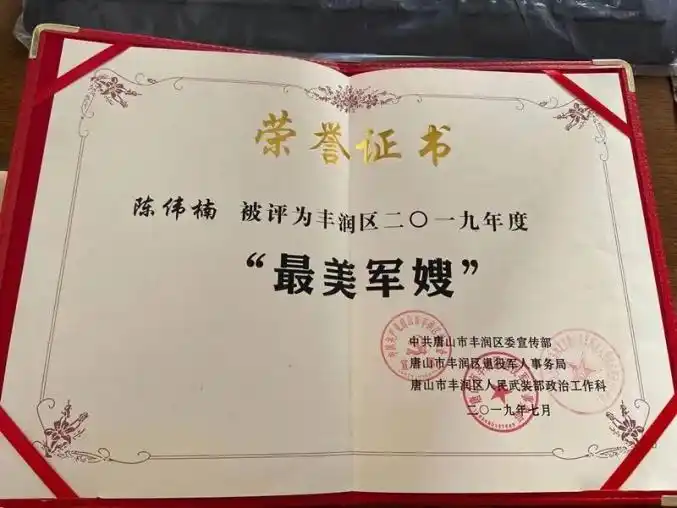 荣誉证书
陈伟楠 被评为丰润区二〇一九年度
“最美军嫂”
中共唐山市丰润区委宣传部
唐山市丰润区退役军人事务局
唐山市丰润区人民武装部政治工作科
二〇一九年七月